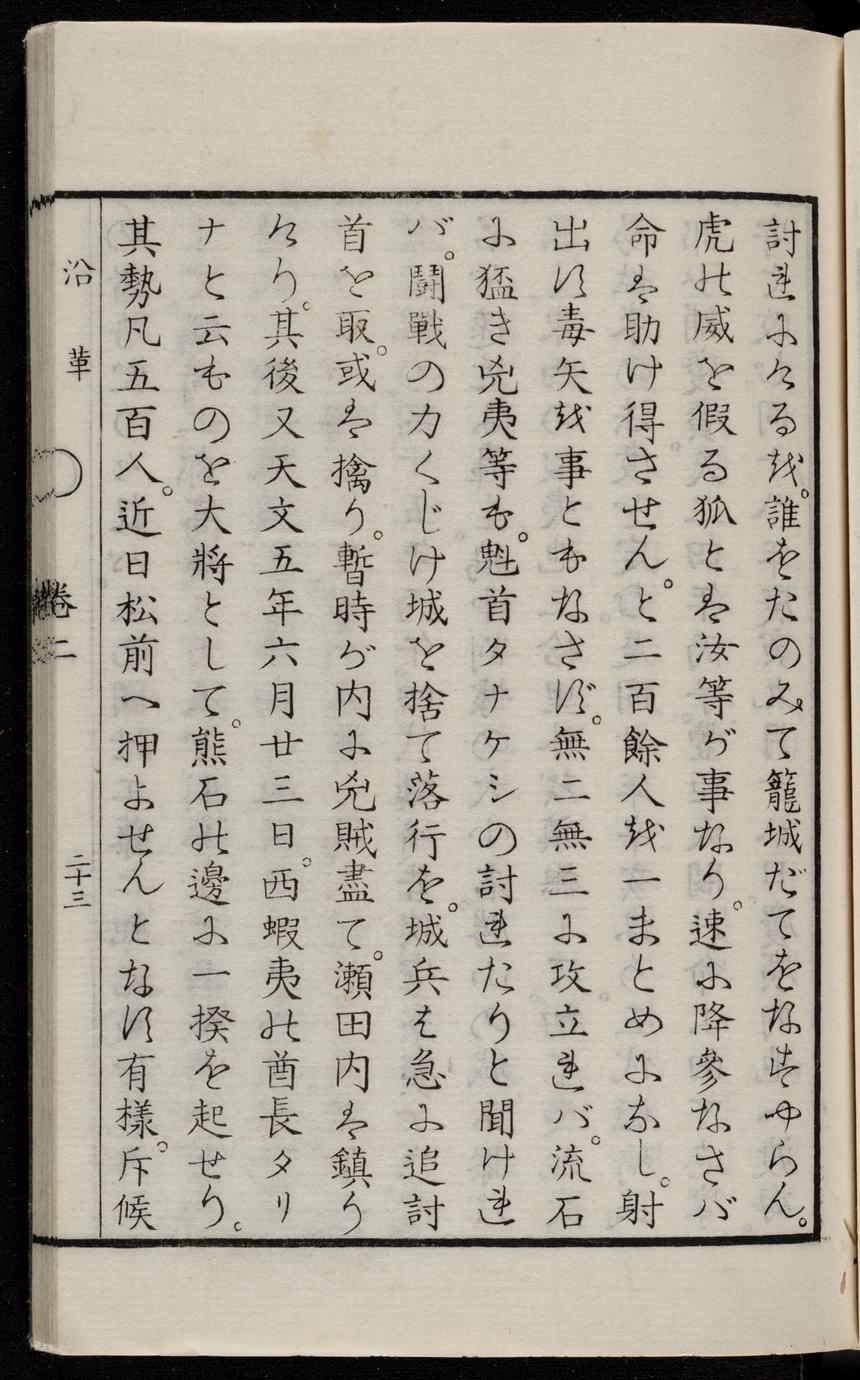 討れにける故。誰をたのみて籠城だてをなすやらん。
虎の威を假る狐とは汝等が事なり。速に降參なさバ
命は助け得させん。と二百餘人を一まとめになし。射
出す毒矢を事ともなさず。無二無三に攻立れバ。流石
に猛き兇夷等も。魁首タナケシの討れたりと聞けれ
バ。鬪戰の力くじけ城を捨て落行を。城兵も急に追討
首を取。或は擒り。暫時が内に兇賊盡て。瀬田内は鎮り
けり。其後又天文五年六月廿三日。西蝦夷の酋長タリ
ナと云ものを大將として。熊石の邊に一揆を起せり。
其勢凡五百人。近日松前へ押よせんとなす有樣。斥候
沿革
卷二
二十三